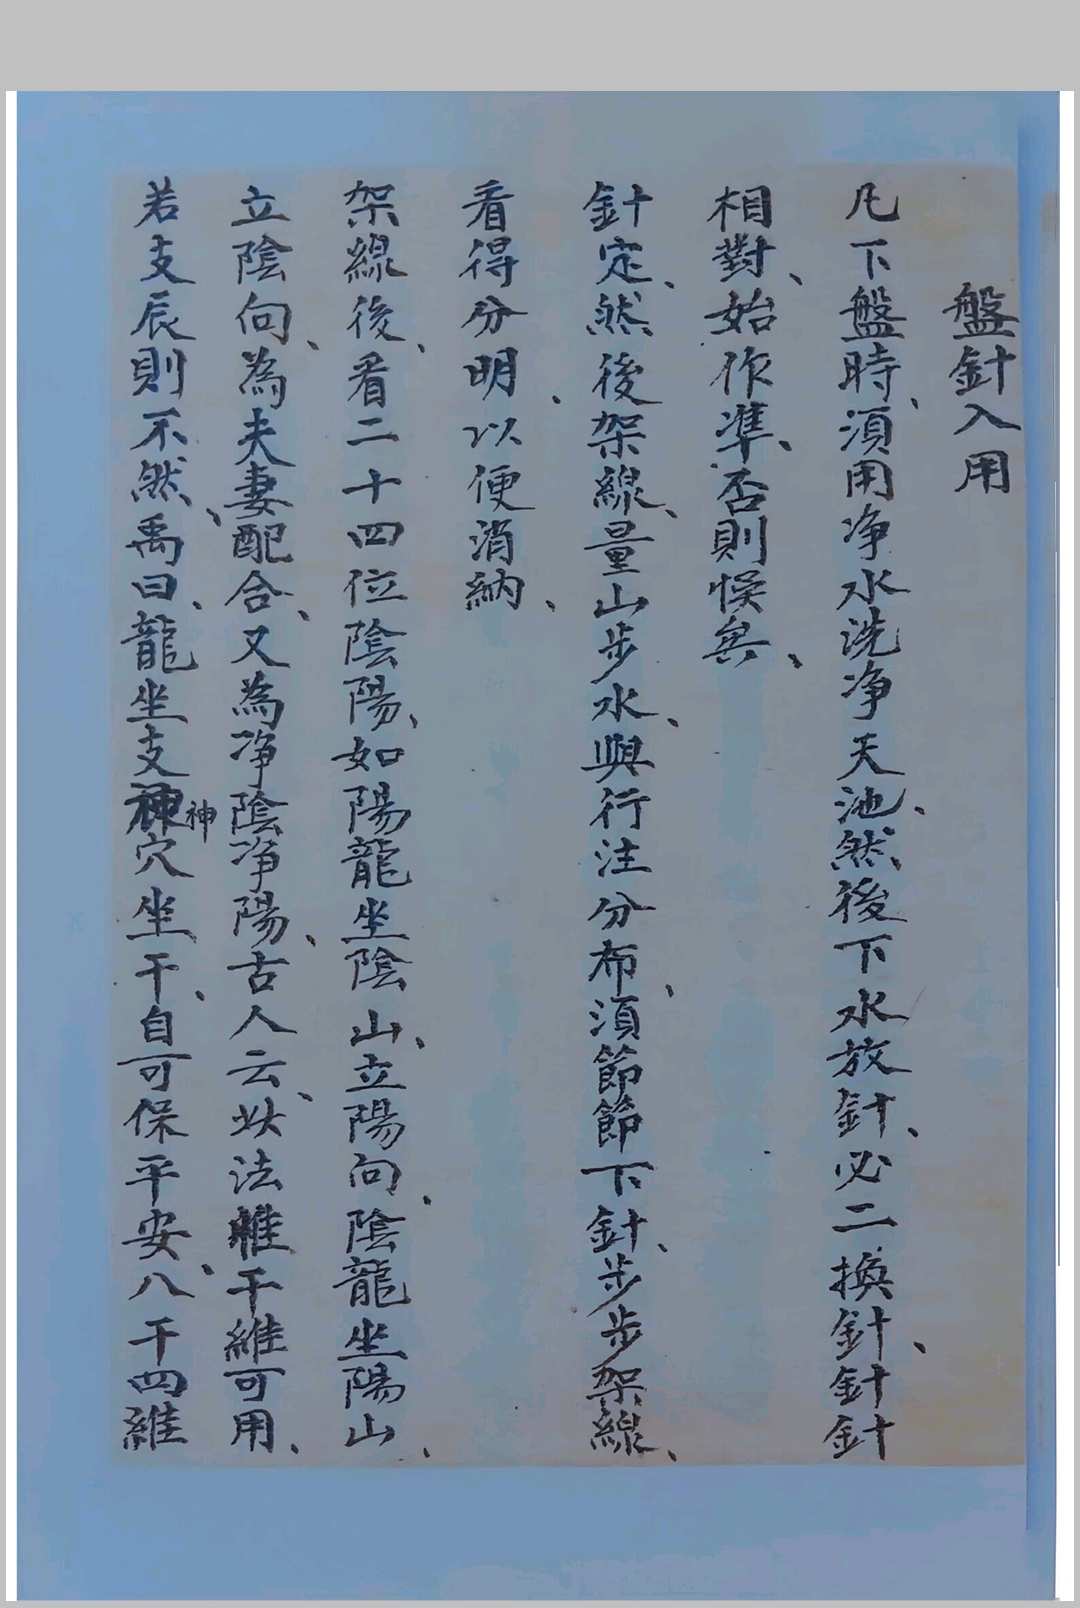 盤針入用
凡下盤時、湏用净水洗净天池、然後下水放針、必二換針、針針
相對、始作準、否則悮矣、
針定、然後架線、量山步水、與行注分布、湏節節下針、步步架線、
看得分明、以便消納、
架線後、看二十四位陰陽、如陽龍坐陰山、立陽向、陰龍坐陽山、
立陰向、為夫妻配合、又為净陰净陽、古人云、此法惟干維可用、
若支辰則不然、禹曰、龍坐支神穴坐干、自可保平安、八干四維
神